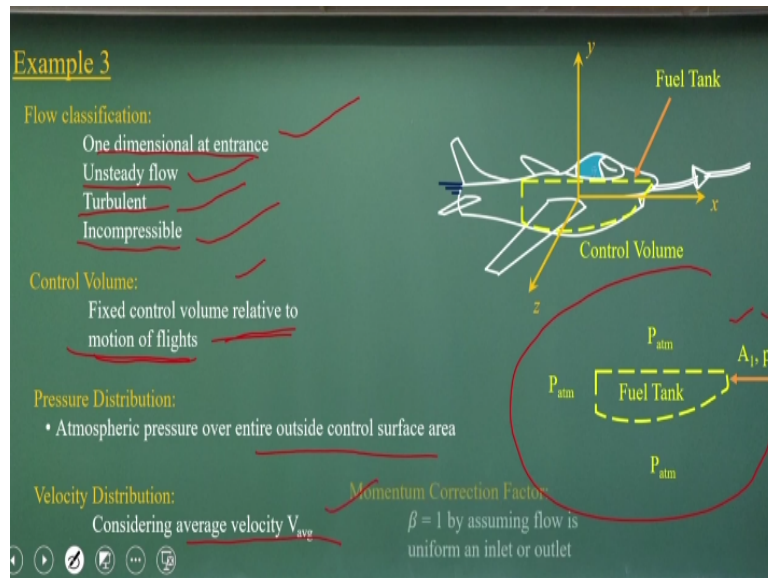 Example 3
Flow classification:
One dimensional at entrance
Unsteady flow
Turbulent
Incompressible
Control Volume:
Fixed control volume relative to
motion of flights
Pressure Distribution:
• Atmospheric pressure over entire outside control surface area
Velocity Distribution:
Considering average velocity Vavg
Momentum Correction Factor:
β = 1 by assuming flow is
uniform an inlet or outlet
y
Fuel Tank
x
Control Volume
z
Patm
A1, p
Patm
Fuel Tank
Patm